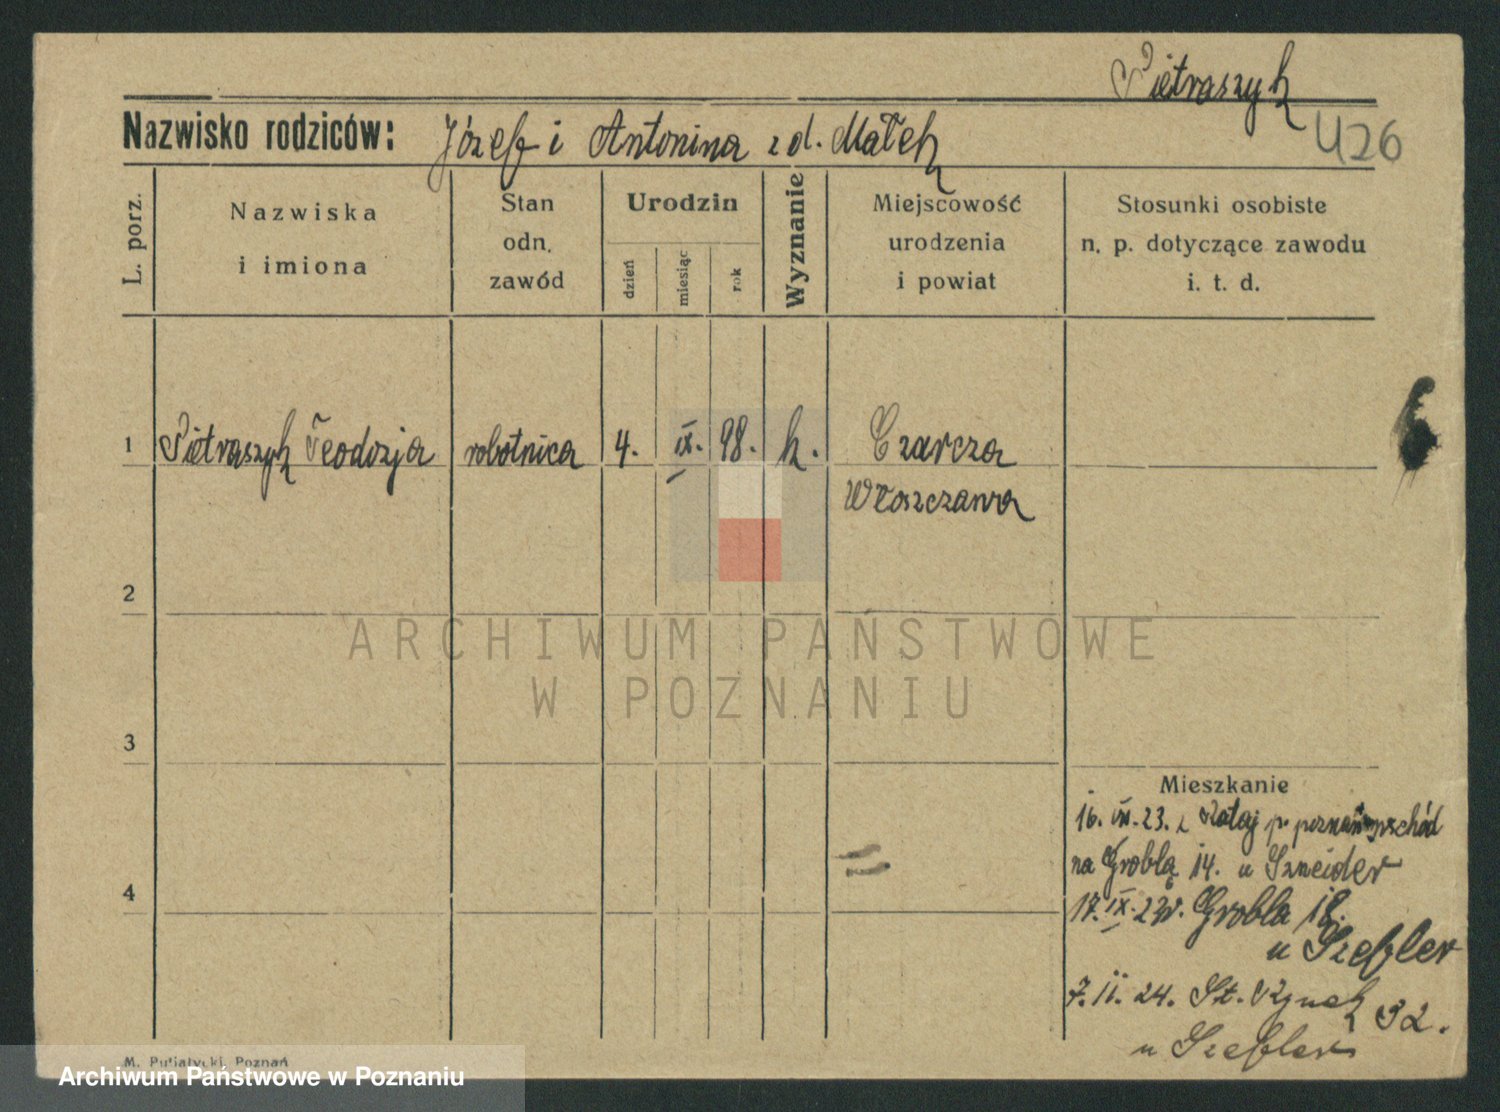 Pietraszyk
Nazwisko rodziców: Józef i Antonina z d. Małek
426
L. porz.
Nazwiska
i imiona
Stan
odn.
zawód
Urodzin
dzień
miesiąc
rok
Wyznanie
Miejscowość
urodzenia
i powiat
Stosunki osobiste
n. p. dotyczące zawodu
i. t. d.
1 Pietraszyk Teodozja robotnica 4. IX. 98. k. Czarcza
Włoszczawa
2
ARCHIWUM PAŃSTWOWE
W POZNANIU
3
Mieszkanie
16. 23. z Rataj p. poznań wschód
na Groblą 14. u Szneider
4
17. IX. 23r. Grobla 18.
u Szefler
7. II. 24. St. Rynek 32.
u Szefler
M. Putiatycki, Poznań
Archiwum Państwowe w Poznaniu